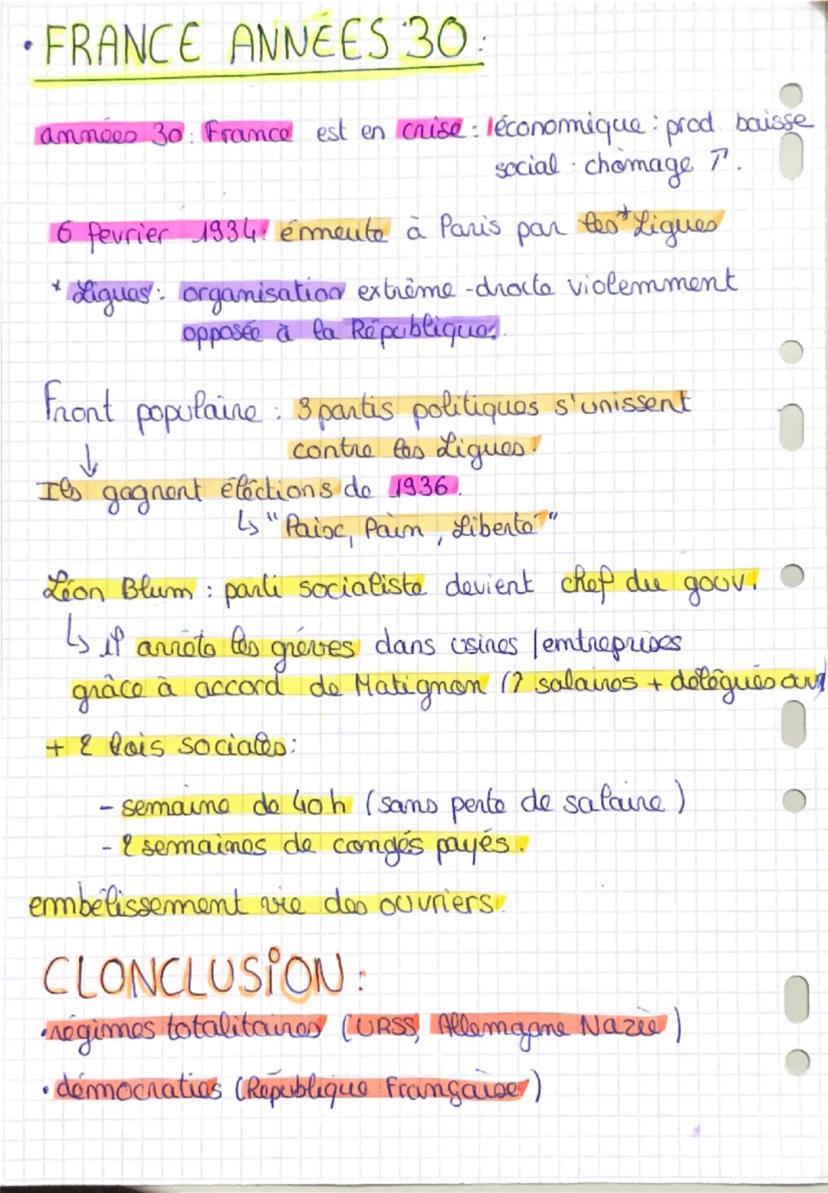 • FRANCE ANNÉES 30:
années 30: France est en crise: économique: prod baisse
social: chômage ↗.
6 fevrier 1934: émmeute à Paris par les* Ligues
* Ligues: organisation extrême-droite violemment
opposée à la République.
Front populaire: 3 partis politiques s'unissent
contre les Ligues!
↓
Ils gagnent éléctions de 1936.
↳ "Paix, Pain, Liberté"
Léon Blum: parti socialiste devient chef du gouv.
↳ il arrête les gréves dans usines / entreprises
grâce à accord de Matignon (↗ salaires + délégués
+ 2 lois sociales:
- semaine de 40h (sans perte de salaire)
- 2 semaines de congés payés.
emmbélissement vie des ouvriers.
CLONCLUSION:
• régimes totalitaires (URSS, Allemagne Nazie)
• démocraties (République Française)